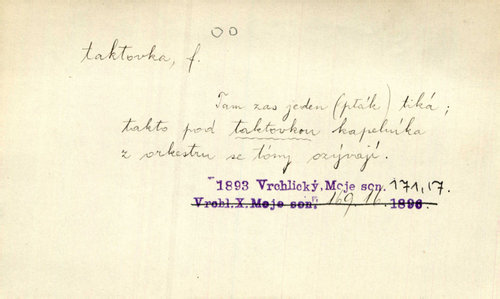 OO
taktovka, f.
Tam zas jeden (pták) tiká;
takto pod taktovkou kapelníka
z orkestru se tóny ozývají.
1893 Vrchlický, Moje son. 171,17.
Vrchl.X.Moje son. 169 16 1896.